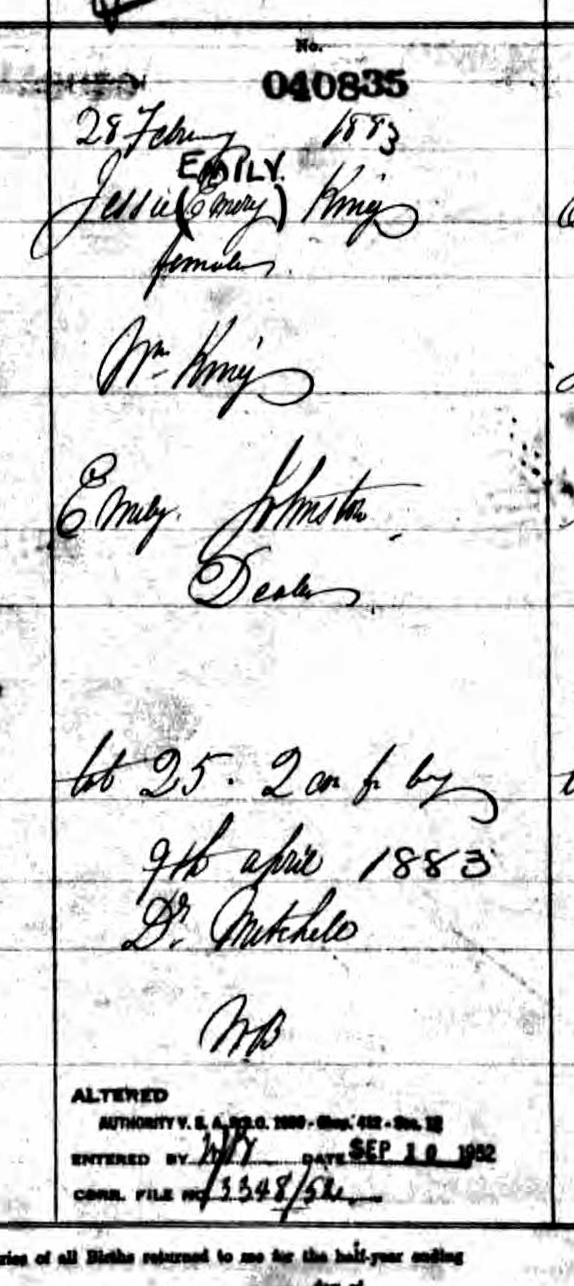 No.
040835
28 February 1883
EMILY.
Jessie (Emery) King
female
Wm King
Emily Johnston
Dealer
lot 25. 2 con fr bay
9th april 1883
Dr. Mitchell
WB
ALTERED
AUTHORITY V. S. A. R.S.O. 1950 - Chap. 412 - Sec.
ENTERED BY DATE SEP 10 1952
CORR. FILE NO. 3348/52
ries of all Births returned to me for the half-year ending
day of